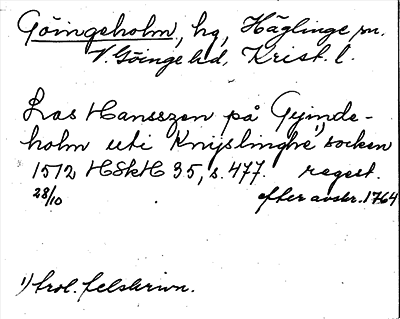 Göingeholm, hg, Häglinge sn.
V. Göinge hd, Krist. l.
Las Hansszen på Gyinde-
holm uti Knijslinghe¹⁾ socken
1512 HSkH 35, s. 477. regest.
28/10 efter avskr. 1764
¹⁾ trol. felskrivn.